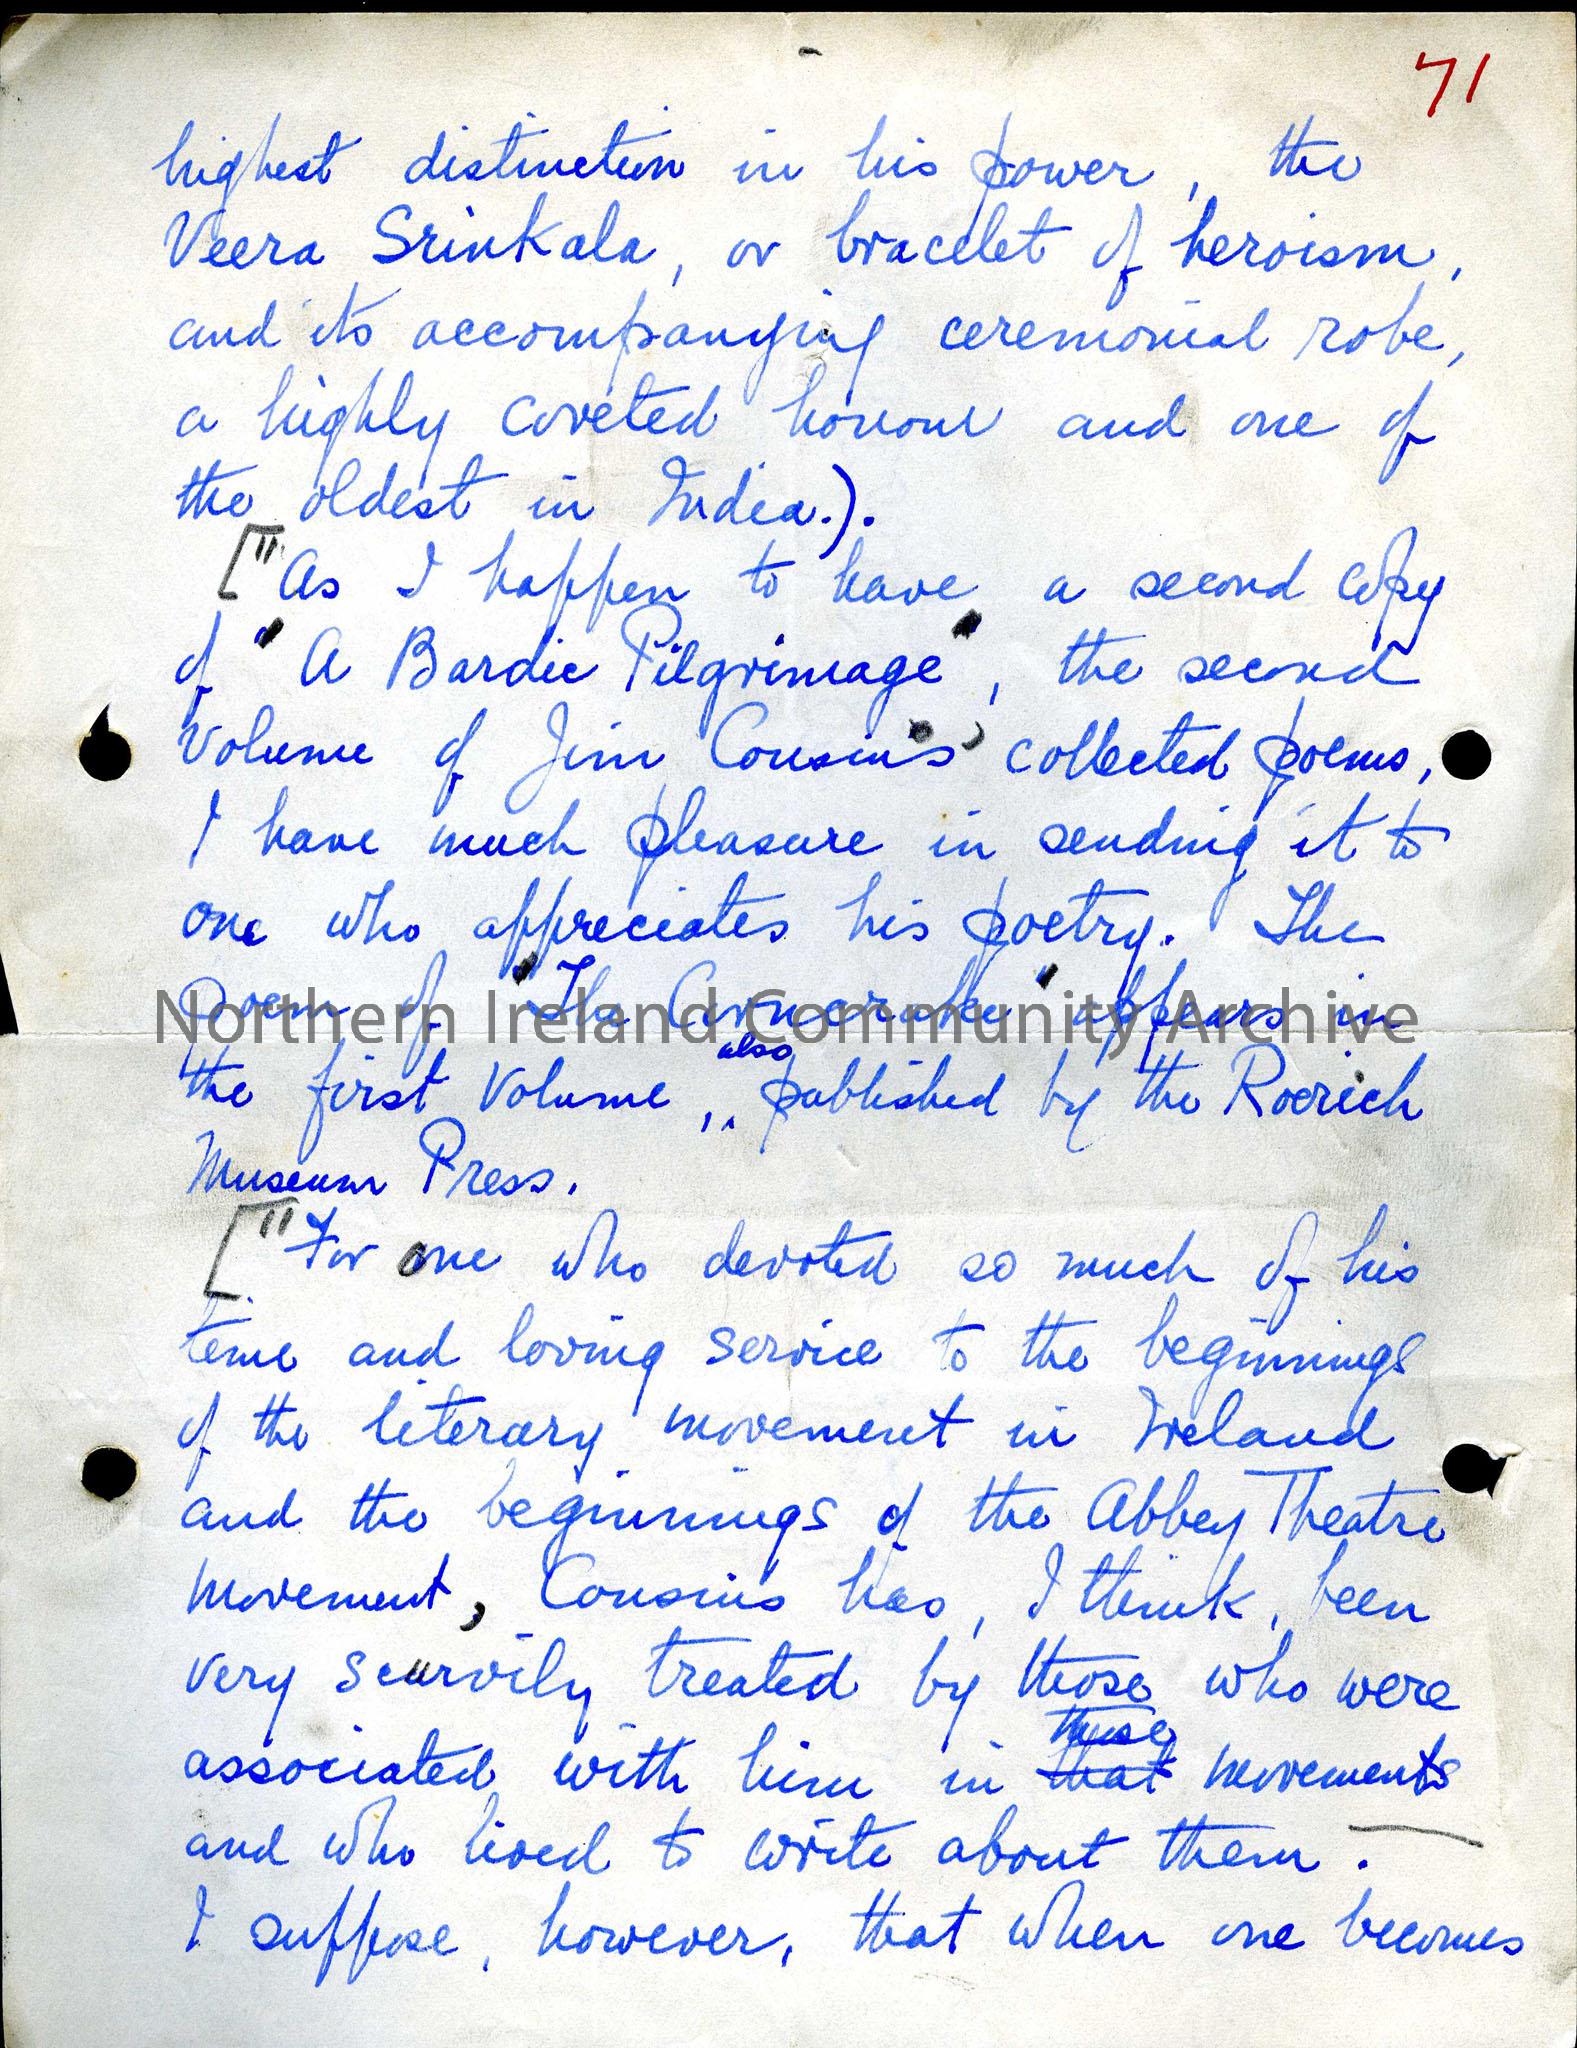 71
highest distinction in his power, the
Veera Srinkala, or bracelet of heroism,
and its accompanying ceremonial robe,
a highly coveted honour and one of
the oldest in India.).
["As I happen to have a second copy
of "A Bardic Pilgrimage", the second
volume of Jim Cousins' collected poems,
I have much pleasure in sending it to
one who appreciates his poetry. The
Poem of "The Corncrake" appears in
Northern Ireland Community Archive
the first volume, also published by the Roerich
Museum Press.
["For one who devoted so much of his
time and loving service to the beginnings
of the literary movement in Ireland
and the beginnings of the Abbey Theatre
movement, Cousins has, I think, been
very scurvily treated by those who were
associated with him in that these movements
and who lived to write about them.
I suppose, however, that when one becomes